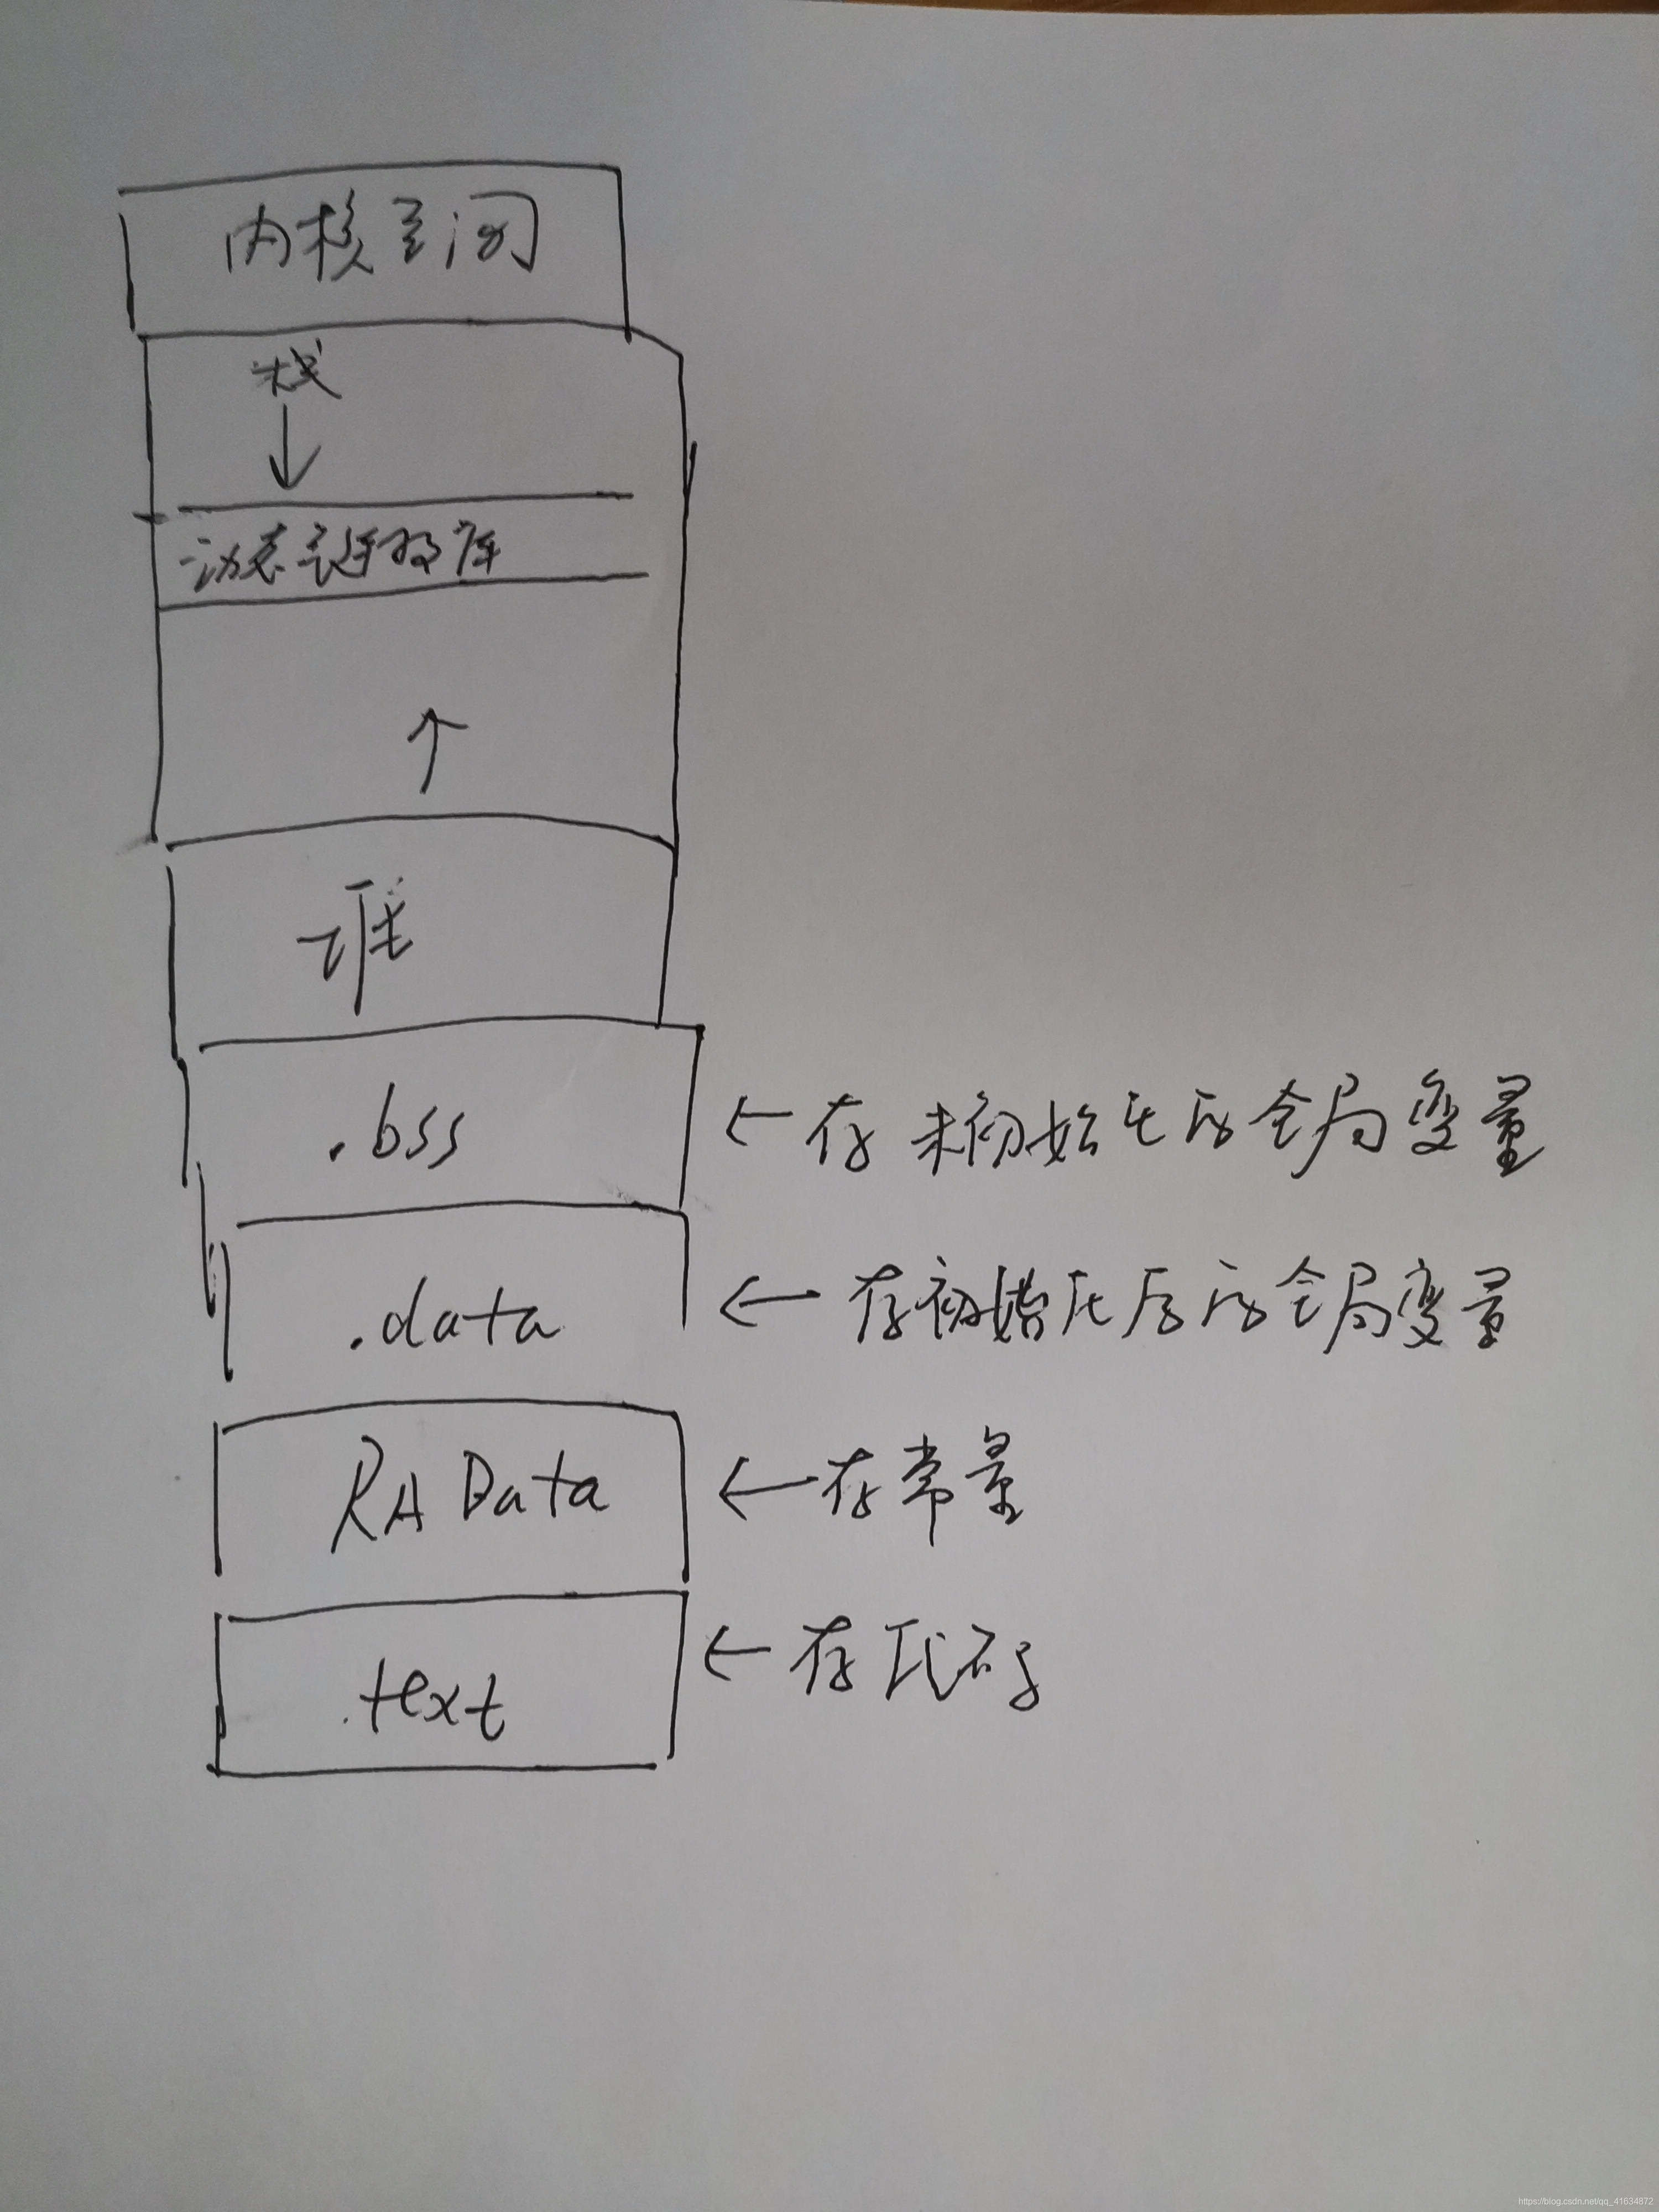 内核空间
栈
↓
动态链接库
↑
堆
.bss ← 存未初始化的全局变量
.data ← 存初始化后的全局变量
RA Data ← 存常量
.text ← 存代码
https://blog.csdn.net/qq_41634872